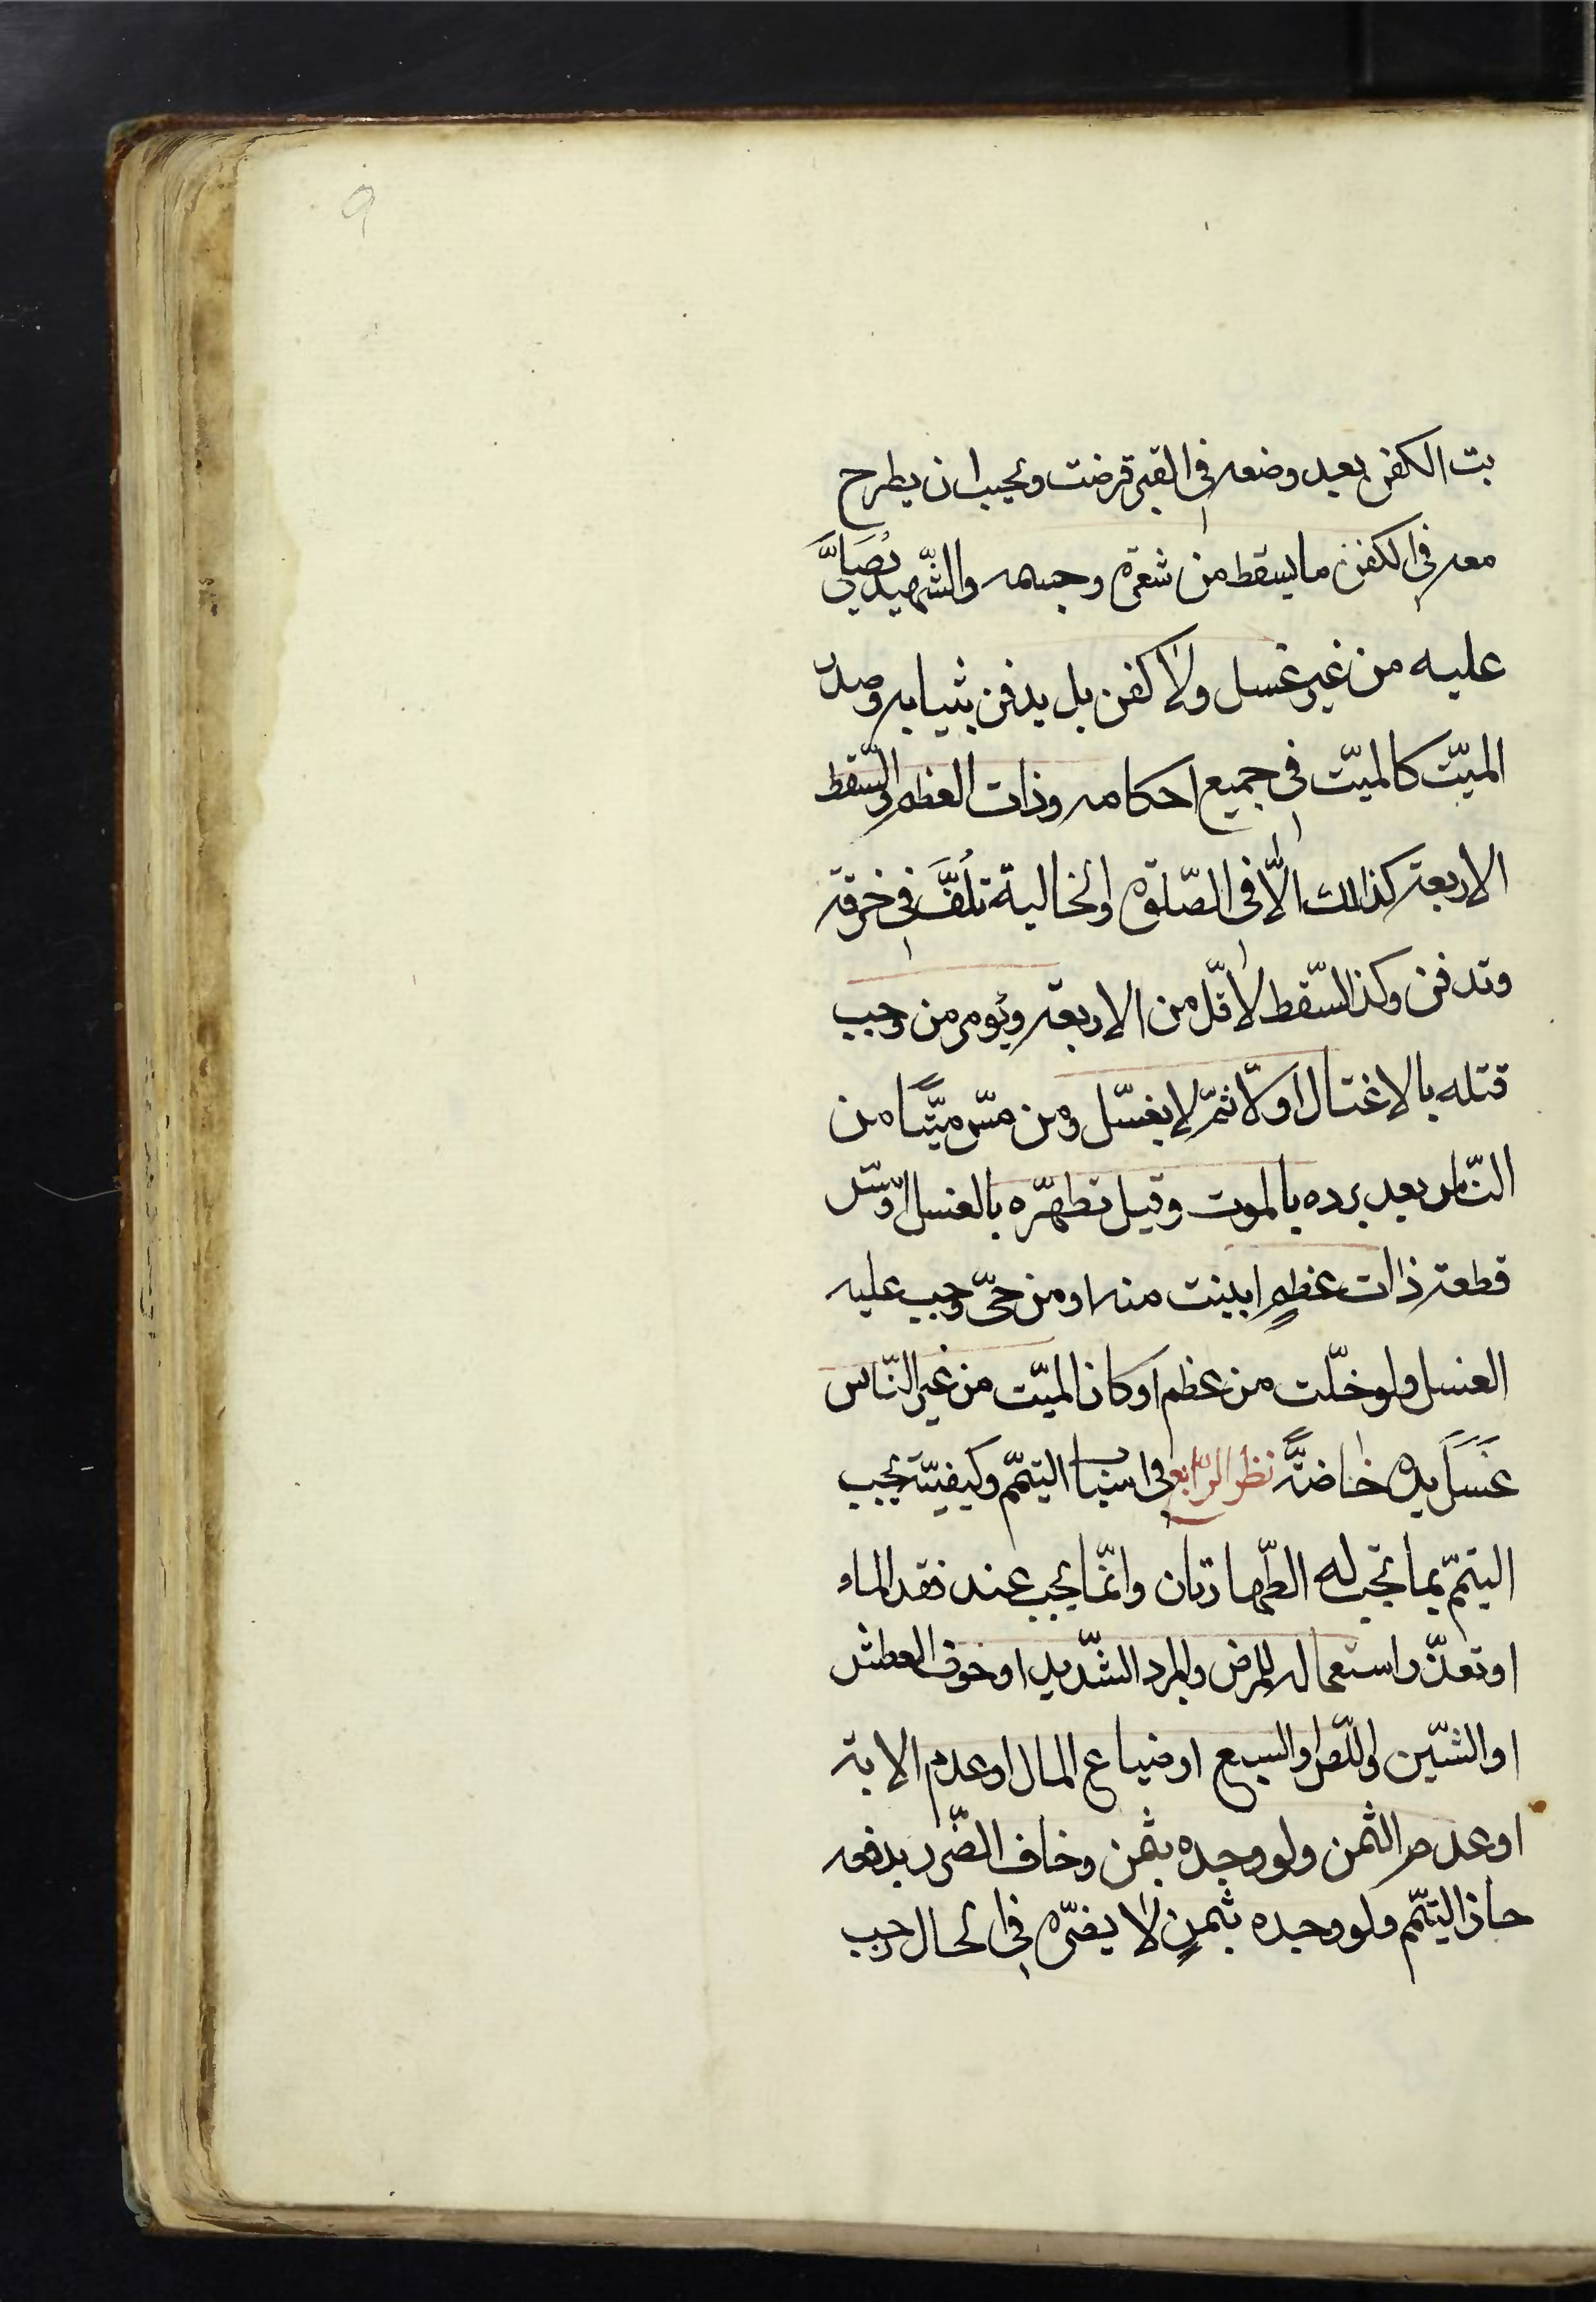 9
بت الكفن بعد وضعه في القبر قرضت ويجب ان يطرح
معه في الكفن ما يسقط من شعره وجسمه والشّهيد يُصَلَّي
عليه من غير غسل ولا كفن بل يدفن بثيابه وصدر
الميّت كالميّت في جميع احكامه وذات العظم والسّقط
الاربعة كذلك الّا في الصّلوة والخالية تُلَفَّ في خرقة
وتدفن وكذا السّقط لاقلّ من الاربعة ويؤمر من وجب
قتله بالاغتسال اوّلا ثمّ لا يغسّل ومن مسّ ميّتًا من
النّاس بعد برده بالموت وقبل تطهّره بالغسل او مسّ
قطعة ذات عظمٍ ابينت منه او من حيّ وجب عليه
الغسل ولو خلّت من عظم او كان الميّت من غير النّاس
غَسَلَ يده خاصّةً نظر الرّابع في اسباب التيمّم وكيفيّته يجب
التيمّم بما تجب له الطّهارتان وانّما يجب عند فقد الماء
او تعذّر استعماله للمرض والبرد الشّديد او خوف العطش
او الشّين او اللّص او السبع او ضياع المال او عدم الالة
او عدم الثمن ولو وجده بثمن وخاف الضّرر بدفعه
جاز التيمّم ولو وجده بثمنٍ لا يضرّه في الحال وجب